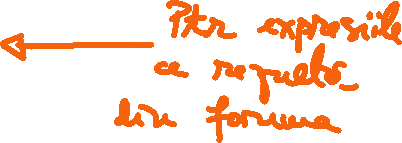 Ptr expresiile
ce rezultă
din forma